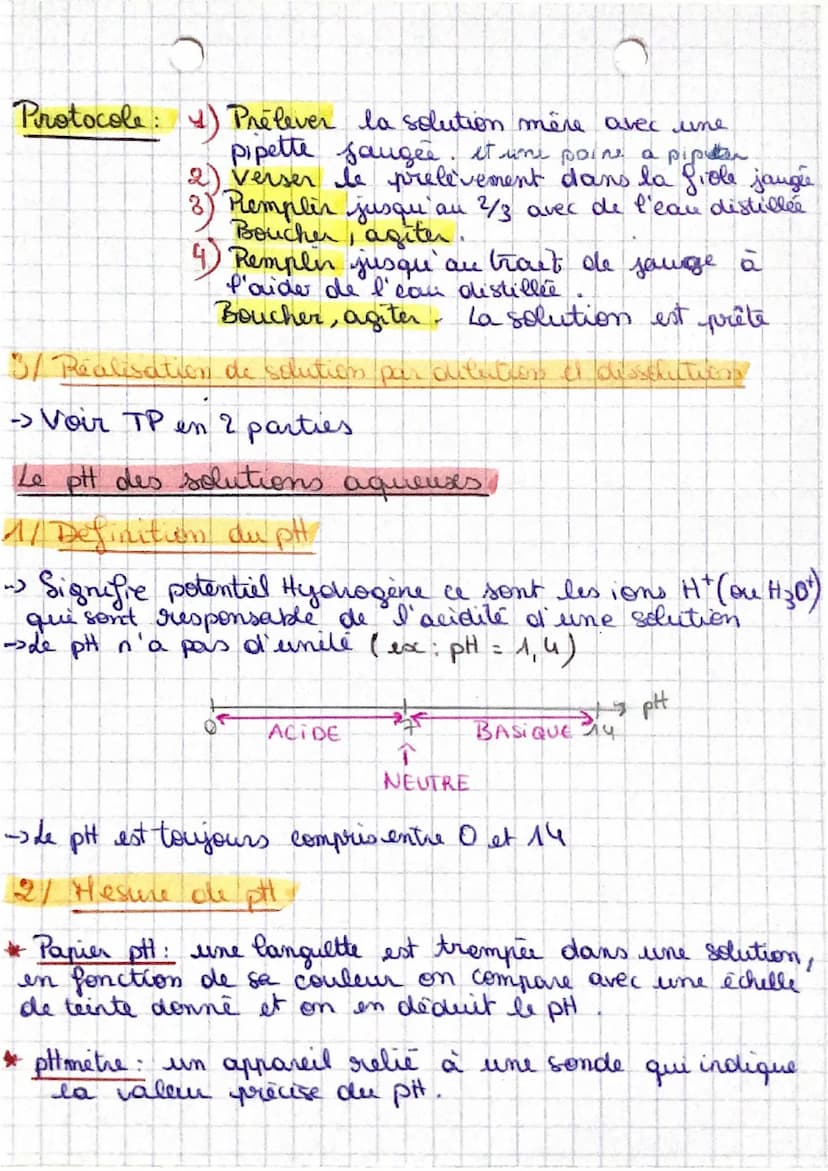 Protocole : 1) Prélever la solution mère avec une
pipette jaugée. et une poire a pipeter
2) Verser le prelèvement dans la fiole jaugée
3) Remplir jusqu'au 2/3 avec de l'eau distillée
Boucher, agiter.
4) Remplir jusqu'au trait de jauge à
l'aide de l'eau distillée.
Boucher, agiter. La solution est prête
3/ Réalisation de solution par dilution et dissolution
-> Voir TP en 2 parties
Le pH des solutions aqueuses
1/ Définition du pH
-> Signifie potentiel Hydrogène ce sont les ions H⁺ (ou H₃O⁺)
qui sont responsable de l'acidité d'une solution
-> Le pH n'a pas d'unité (ex : pH = 1,4)
pH
0 ACIDE 7 BASIQUE 14
NEUTRE
-> Le pH est toujours compris entre 0 et 14
2/ Mesure de pH
* Papier pH : une languette est trempée dans une solution,
en fonction de sa couleur on compare avec une échelle
de teinte donné et on en déduit le pH.
* pHmètre : un appareil relié à une sonde qui indique
la valeur précise du pH.